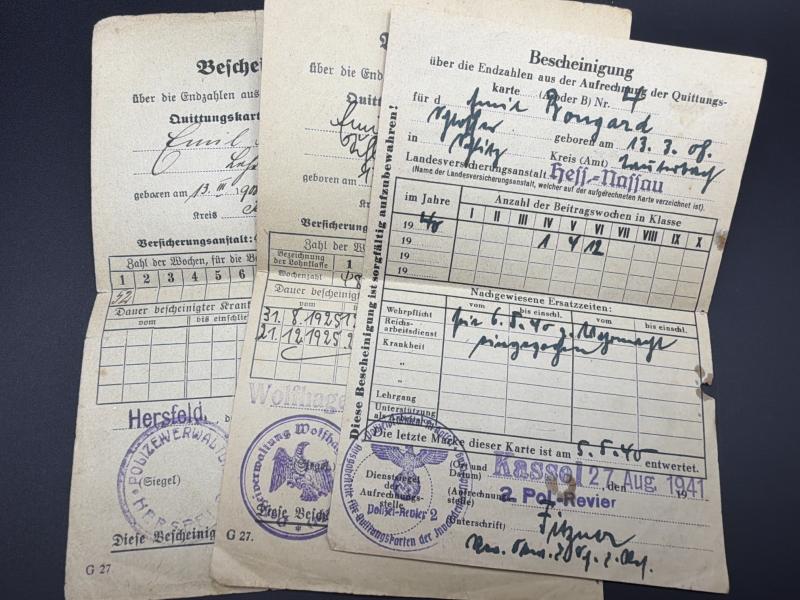 Beschei
über die Endzahlen aus
Quittungskart
Emil
geboren am 13. III 90
Kreis
Versicherungsanstalt:
Zahl der Wochen, für die B
1 2 3 4 5 6
52
Dauer bescheinigter Krank
vom bis einschlie
Hersfeld,
POLIZEIVERWALTU
HERSFE
(Siegel)
Diese Bescheinig
G 27
über die Endz
Quittu
Emil
geboren am
Versicherung
Zahl der
Bezeichnung der Lohnklasse 1
Wochenzahl
Dauer besch
vom
31. 8. 1925
21. 12. 1925
Wolfhage
verwaltung Wolfha
(Siegel)
Diese Besch
G 27.
Diese Bescheinigung ist sorgfältig aufzubewahren!
Bescheinigung
über die Endzahlen aus der Aufrechnung der Quittungs-
karte (A oder B) Nr. 4
für d Emil Bongard
Schlosser geboren am 13. 3. 08.
in Schlitz Kreis (Amt) Lauterbach
Landesversicherungsanstalt Hess.-Nassau
(Name der Landesversicherungsanstalt, welcher auf der aufgerechneten Karte verzeichnet ist).
im Jahre Anzahl der Beitragswochen in Klasse
I II III IV V VI VII VIII IX X
19 40
19 1 4 12
19
19
Nachgewiesene Ersatzzeiten:
vom bis einschl. vom bis einschl.
Wehrpflicht
Reichs-
arbeitsdienst
Krankheit
"
"
Lehrgang
Unterstützung
als Arbeitsloser
6.5.40 z. Wehrmacht
eingezogen
Die letzte Marke dieser Karte ist am 5.5.40 entwertet.
Dienstsiegel
der
Aufrechnungs-
stelle
Polizei-Revier 2
Ausgabestelle für Quittungskarten der Invaliden
(Ort und Datum) Kassel, den 27. Aug. 1941 19
(Aufrechnungs-
stelle) 2 Pol.-Revier
(Unterschrift) Fitzner